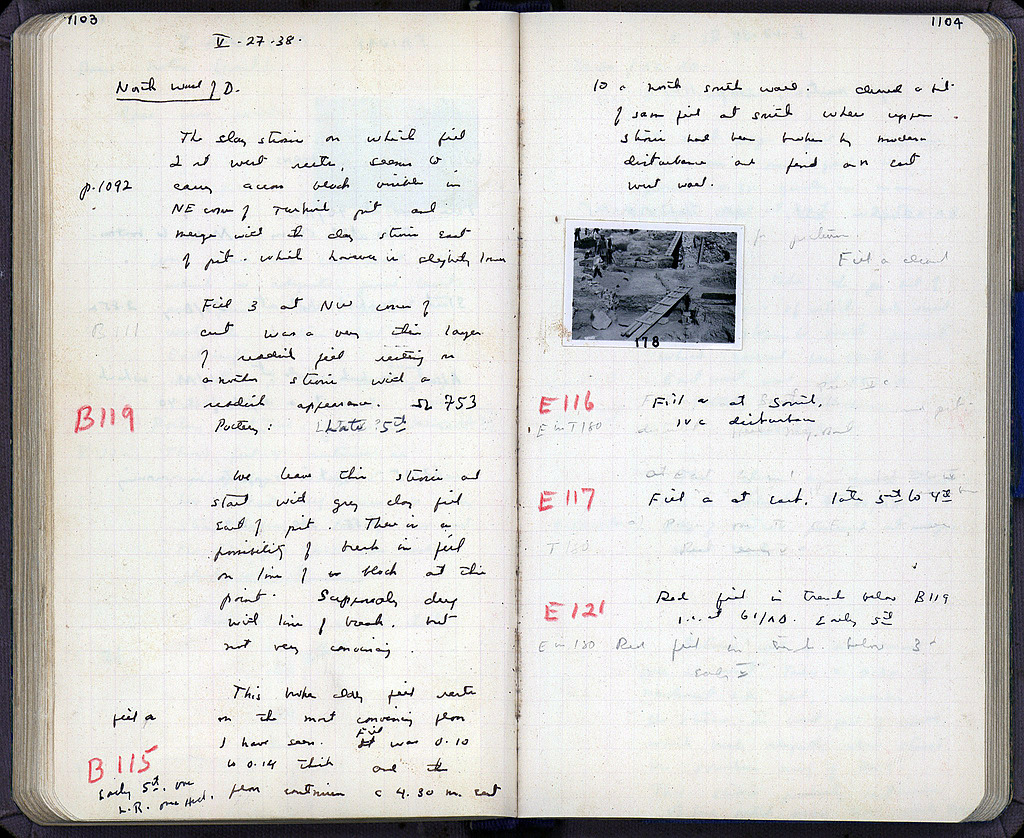 1103
V-27-38.
North wall of D.
The clay stroses on which fill
2 at west rests, seems to
p.1092 carry across block visible in
NE corner of Turkish pit and
merge with the clay stroses east
of pit. which however is slightly lower
Fill 3 at NW corner of
B 111 cut was a very thin layer
of reddish fill resting on
another stroses with a
reddish appearance. 753
B119 Pottery: Late 5th
We leave this stroses and
start with grey clay fill
East of pit. There is a
possibility of break in fill
on line of block at this
point. Supposedly dug
with line of break. but
not very convincing.
This broken clay fill rests
fill a on the most convincing floor
I have seen. Fill was 0.10
B115 to 0.14 thick and the
Early 5th. one floor continues c 4.30 m. east
L.R. one
1104
to a north south wall. cleaned a bit
of same fill at south where upper
stroses had been broken by modern
disturbance and find an east
west wall.
Fill a cleaned
178
E116 Fill a at South.
E in T180 IV c disturbance
E117 Fill a at east. late 5th to 4th
T180
E121 Red fill in trench below B119
i.e. at 61/ΛΟ. Early 5th
E in 180 Red fill in below 3
Early